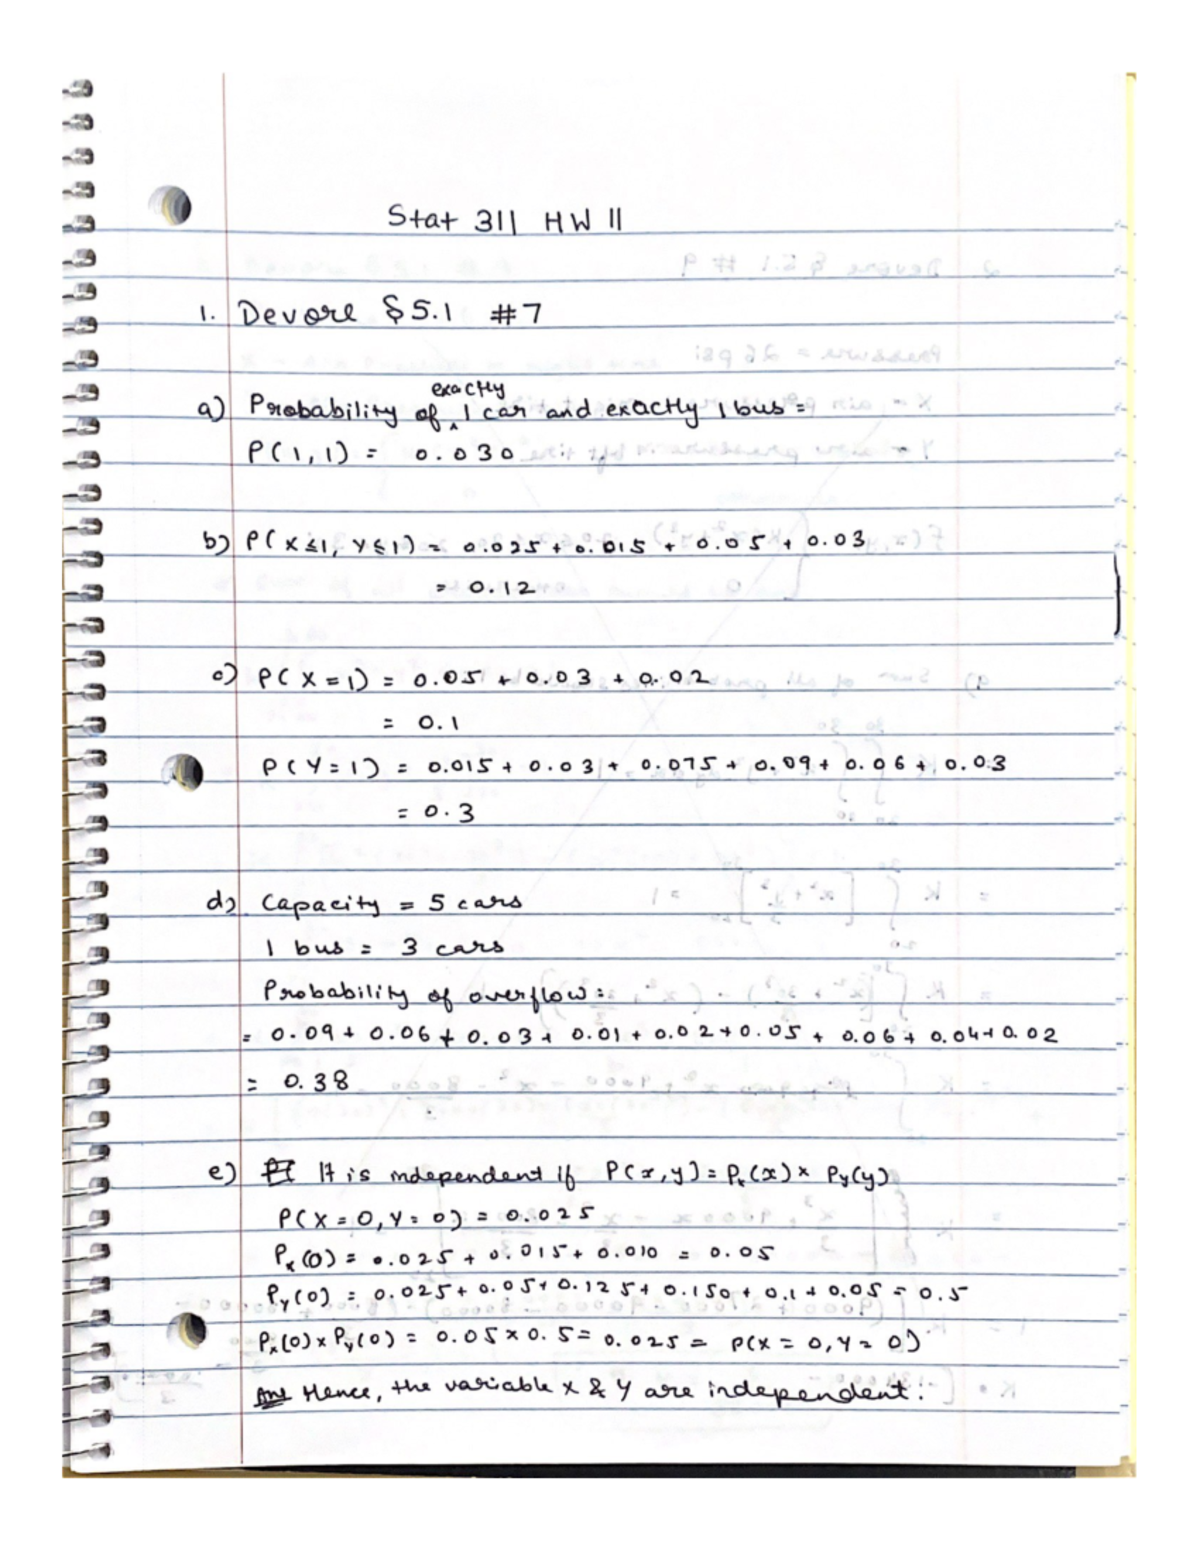 Stat 311 HW 11
1. Devore § 5.1 #7
a) Probability of exactly 1 car and exactly 1 bus =
P(1,1) = 0.030
b) P(X≤1, Y≤1) = 0.025 + 0.015 + 0.05 + 0.03
= 0.12
c) P(X=1) = 0.05 + 0.03 + 0.02
= 0.1
P(Y=1) = 0.015 + 0.03 + 0.075 + 0.09 + 0.06 + 0.03
= 0.3
d) Capacity = 5 cars
1 bus = 3 cars
Probability of overflow:
= 0.09 + 0.06 + 0.03 + 0.01 + 0.02 + 0.05 + 0.06 + 0.04 + 0.02
= 0.38
e) It is independent if P(x,y) = Px(x) × Py(y)
P(X=0, Y=0) = 0.025
Px(0) = 0.025 + 0.015 + 0.010 = 0.05
Py(0) = 0.025 + 0.05 + 0.125 + 0.150 + 0.1 + 0.05 = 0.5
Px(0) × Py(0) = 0.05 × 0.5 = 0.025 = P(X=0, Y=0)
Ans Hence, the variable X & Y are independent.